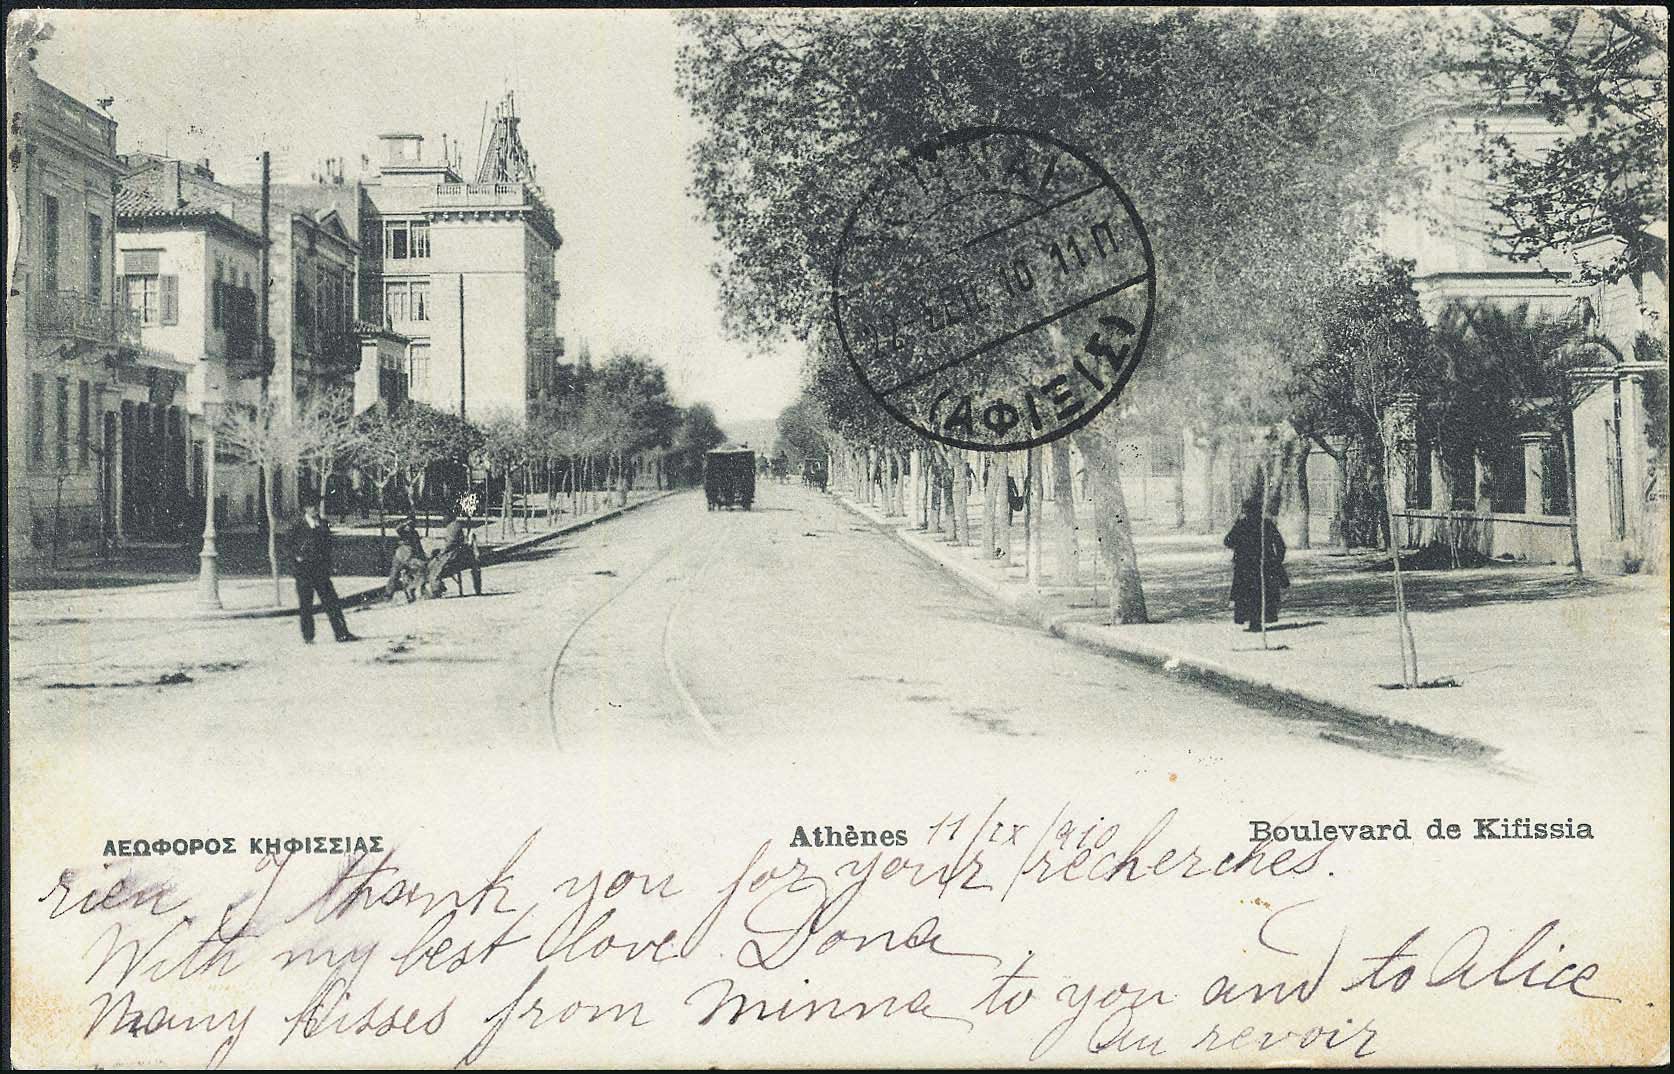 22 ΣΕΠ. 10 11Π
(ΑΦΙΞΙΣ)
ΛΕΩΦΟΡΟΣ ΚΗΦΙΣΣΙΑΣ
Athènes 11/IX/910
Boulevard de Kifissia
rien. I thank you for your recherches.
With my best love Dona
Many kisses from Minna to you and to Alice
Au revoir